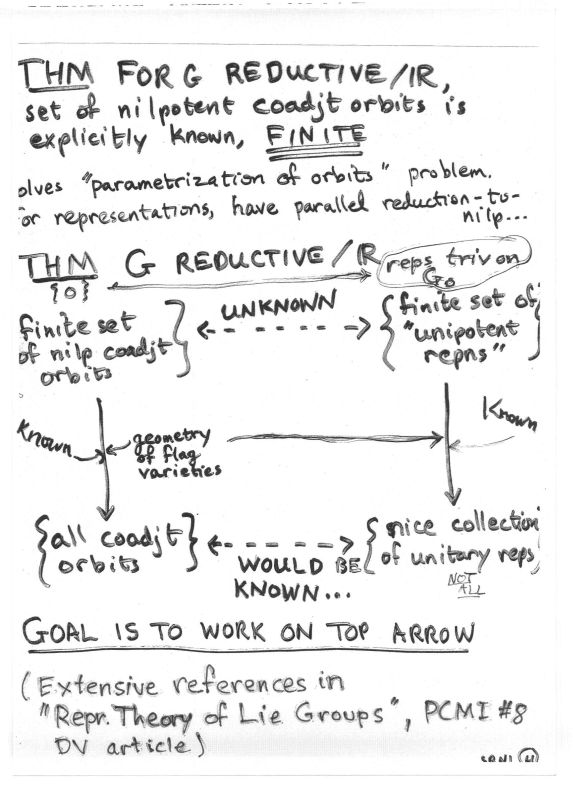 THM FOR G REDUCTIVE/IR,
set of nilpotent coadjt orbits is
explicitly known, FINITE
olves "parametrization of orbits" problem.
or representations, have parallel reduction-to-
nilp...
THM G REDUCTIVE/IR
reps triv on
G₀
{0}
UNKNOWN
finite set
of nilp coadjt
orbits
finite set of
"unipotent
repns"
Known
geometry
of flag
varieties
Known
{all coadjt}
orbits
WOULD BE
KNOWN...
{nice collection
of unitary reps
NOT
ALL
GOAL IS TO WORK ON TOP ARROW
(Extensive references in
"Repr. Theory of Lie Groups", PCMI #8
DV article)